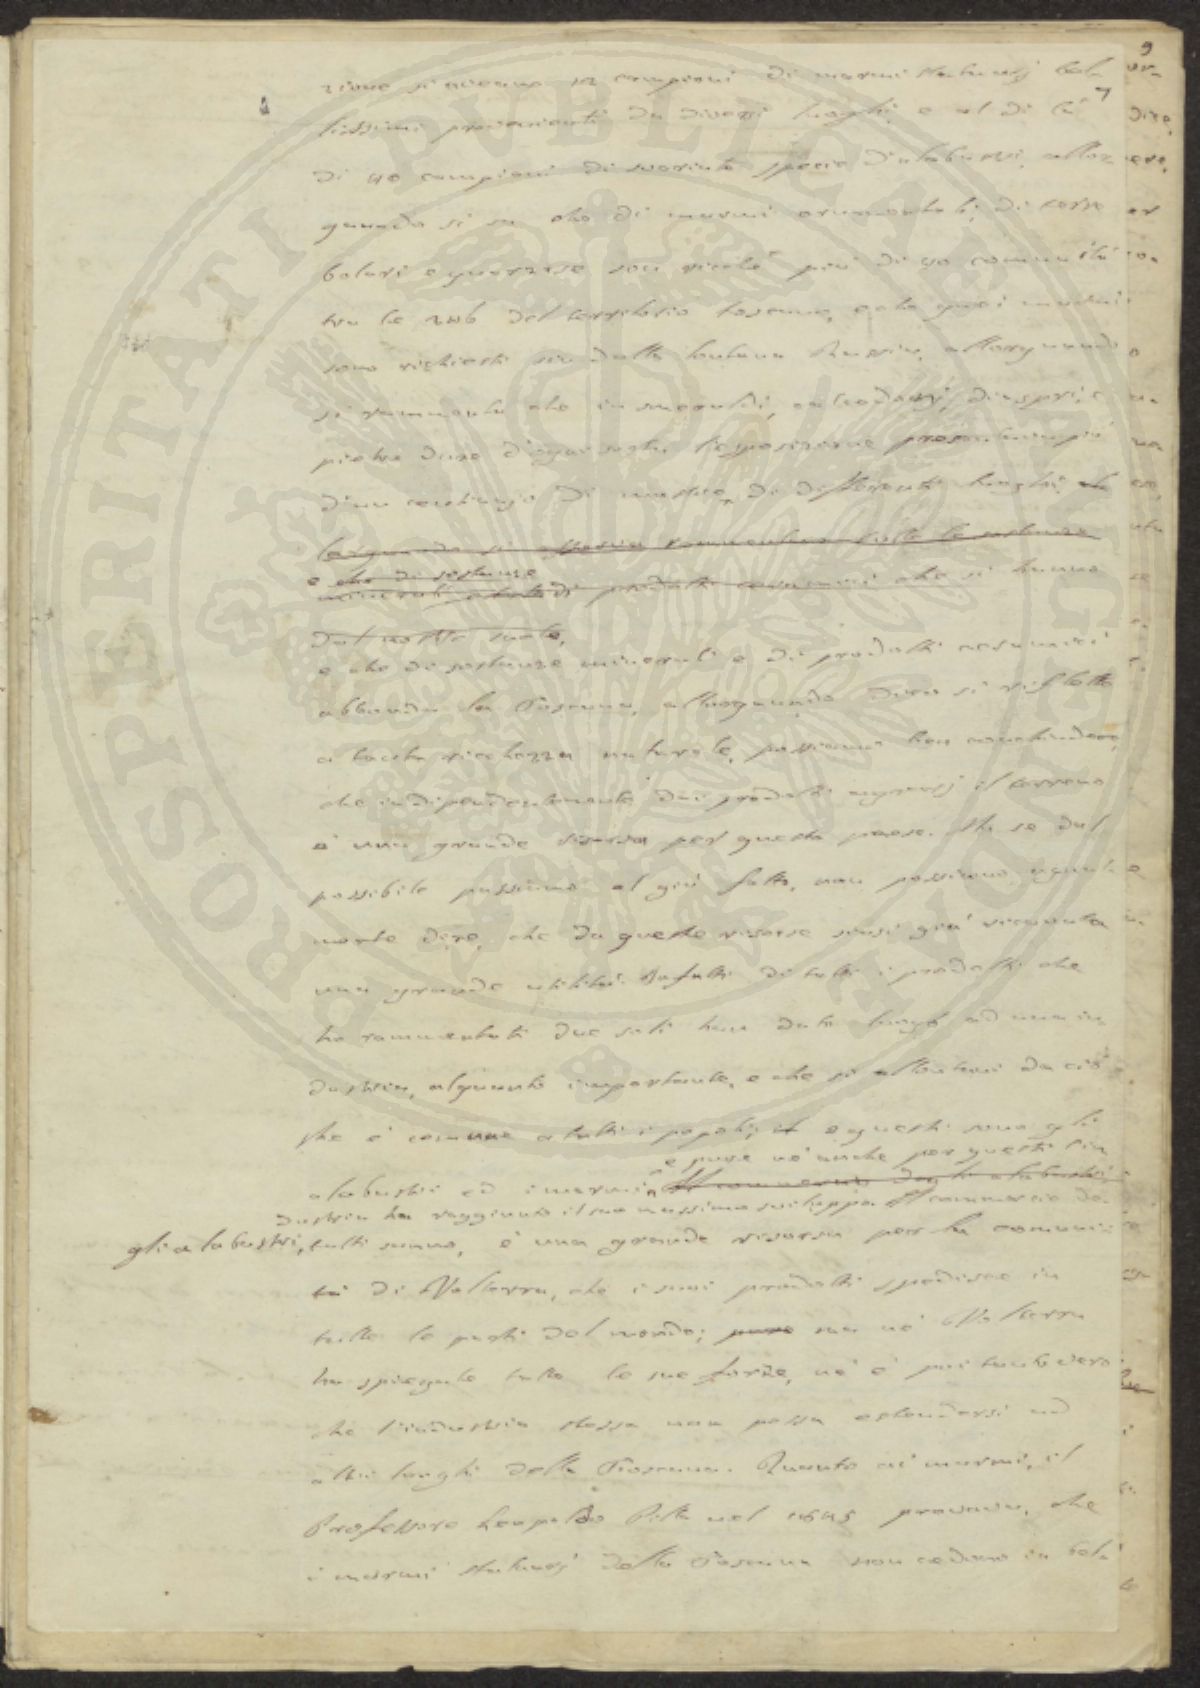 9
7
zione si aveano 12 campioni di marmi statuarj bel-
lissimi provenienti da diversi luoghi, e al di là
di 40 campioni di svariate specie d'alabastri, allor
quando si sa che di marmi ornamentali, di terre
bolari e quarzose son ricche più di 40 comunità
tra le 246 del territorio toscano, e che quei marmi
sono richiesti sin dalla lontana Russia, allorquando
si rammenta che in smeraldi, calcedonj, diaspri, e
pietre dure d'ogni sorta l'esposizione presentava più
d'un centinajo di mostre, di differenti luoghi,
e che di sostanze
minerali e di prodotti vesuvici che si hanno
dal nostro suolo,
e che di sostanze minerali e di prodotti
abbonda la Toscana, allorquando dico si riflette
a tanta ricchezza naturale, possiamo ben conchiudere,
che indipendentemente dai prodotti agrarj il terreno
è una grande risorsa per questo paese. Ma se dal
possibile passiamo al già fatto, non possiamo egual-
mente dire, che da queste risorse siasi già ricavata
una grande utilità. Infatti di tutti i prodotti che
ho rammentati due soli han dato luogo ad una in
dustria, alquanto importante, e che si allontani da ciò
che è comune a tutti i popoli; e questi sono gli
e pure nè anche per questi l'in
alabastri ed i marmi, Il commercio degli alabastri
dustria ha raggiunto il suo massimo sviluppo Il commercio de-
gli alabastri, tutti sanno, è una grande risorsa per la comuni
tà di Volterra, che i suoi prodotti spedisce in
tutte le parti del mondo; pure ma nè Volterra
ha spiegate tutte le sue forze, nè è poi tanto vero
che l'industria stessa non possa estendersi ad
altri luoghi della Toscana. Quanto ai marmi, il
Professore Leopoldo Pilla nel 1845 provava, che
i marmi statuarj della Toscana non cedono in bel
PROSPERITATI PUBLICAE AUGENDAE